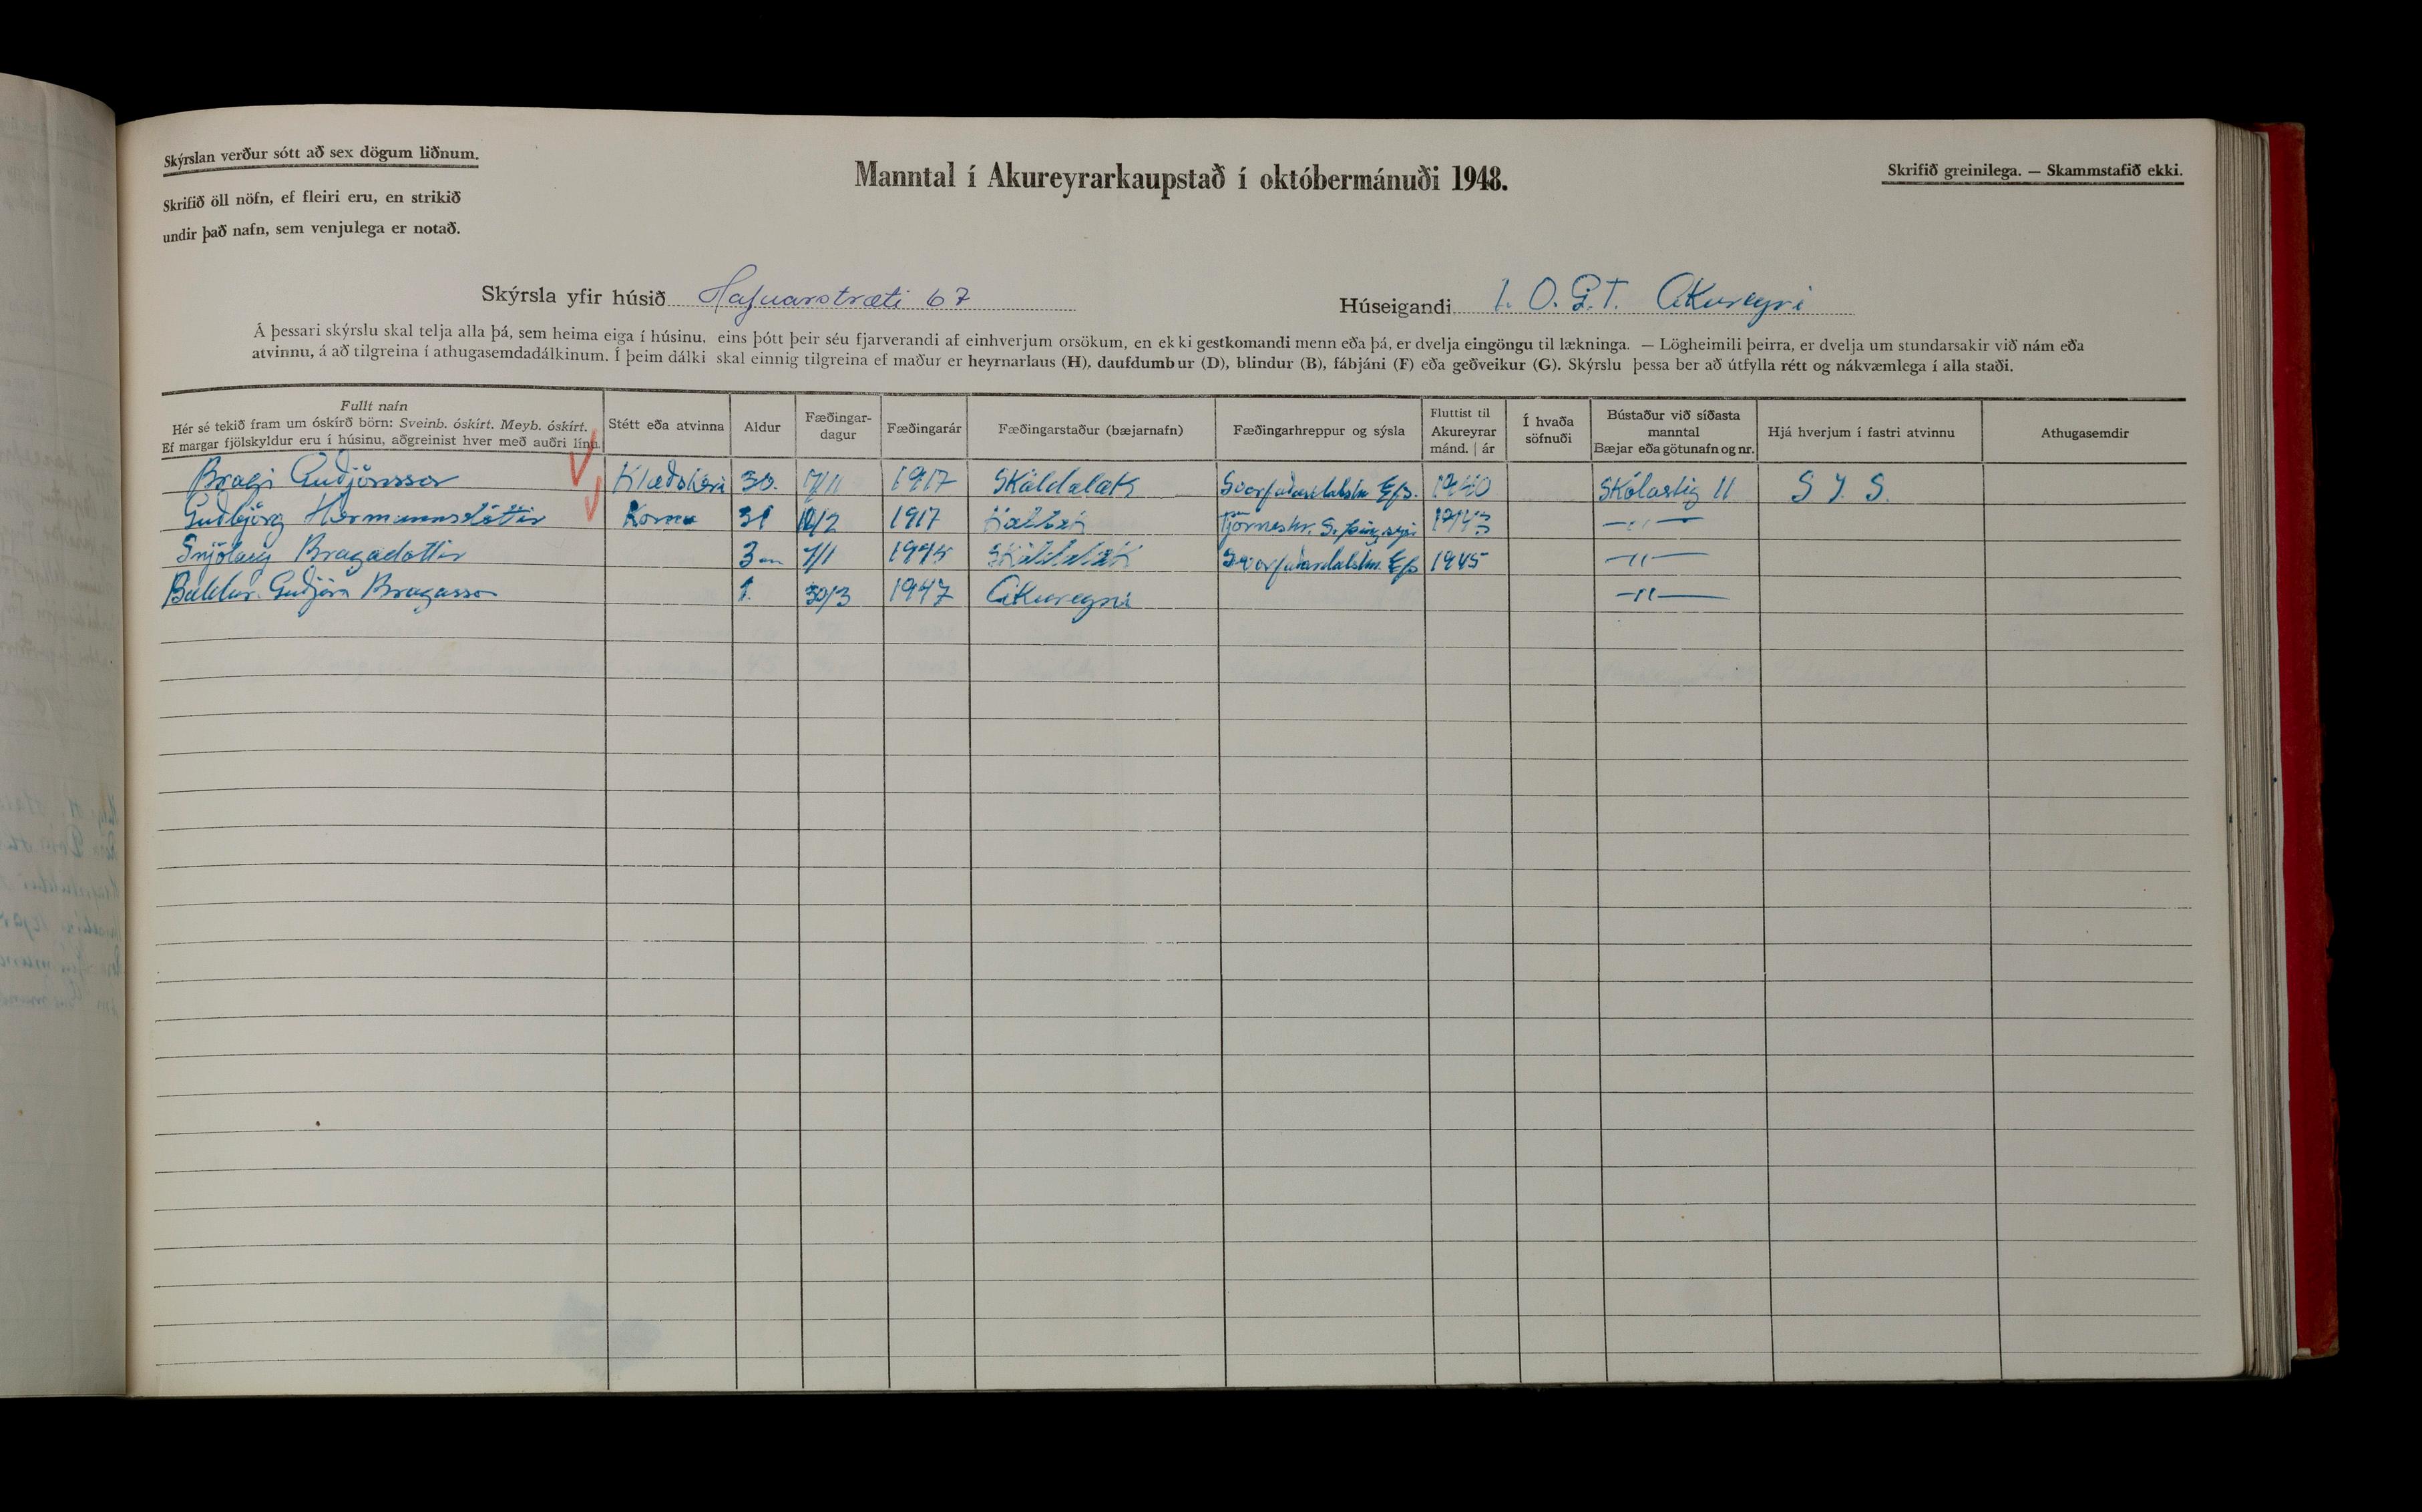 Skýrslan verður sótt að sex dögum liðnum.
Skrifið öll nöfn, ef fleiri eru, en strikið
undir það nafn, sem venjulega er notað.
Manntal í Akureyrarkaupstað í októbermánuði 1948.
Skrifið greinilega. — Skammstafið ekki.
Skýrsla yfir húsið Hafnarstræti 67
Húseigandi I. O. G. T. Akureyri
Á þessari skýrslu skal telja alla þá, sem heima eiga í húsinu, eins þótt þeir séu fjarverandi af einhverjum orsökum, en ekki gestkomandi menn eða þá, er dvelja eingöngu til lækninga. — Lögheimili þeirra, er dvelja um stundarsakir við nám eða
atvinnu, á að tilgreina í athugasemdadálkinum. Í þeim dálki skal einnig tilgreina ef maður er heyrnarlaus (H), daufdumbur (D), blindur (B), fábjáni (F) eða geðveikur (G). Skýrslu þessa ber að útfylla rétt og nákvæmlega í alla staði.
Fullt nafn
Hér sé tekið fram um óskírð börn: Sveinb. óskírt. Meyb. óskírt.
Ef margar fjölskyldur eru í húsinu, aðgreinist hver með auðri línu.
Stétt eða atvinna
Aldur
Fæðingar-
dagur
Fæðingarár
Fæðingarstaður (bæjarnafn)
Fæðingarhreppur og sýsla
Fluttist til
Akureyrar
mánd. | ár
Í hvaða
söfnuði
Bústaður við síðasta
manntal
Bæjar eða götunafn og nr.
Hjá hverjum í fastri atvinnu
Athugasemdir
Bragi Guðjónsson Klæðskeri 30. 7/11 1917 Skáldalæk Svarfaðardalshr. Efs. 1940 Skólastíg 11 S. Í. S.
Guðbjörg Hermannsdóttir Kona 31 10/2 1917 Tjörneshr. S. Þing.sýs. 1943 —"—
Snjólaug Bragadóttir 3 7/1 1945 Skáldalæk Svarfaðardalshr. Efs 1945 —"—
Baldur Guðjón Bragason 1. 30/3 1947 Akureyri —"—